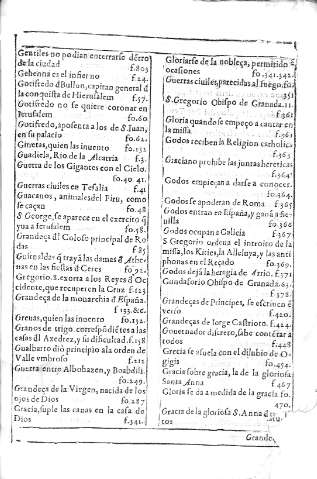 Gentiles no podian enterrarse dẽtro
de la ciudad f.805
Gehenna es el infierno f.24.
Gotifredo d Bullon, capitan general d
la conquista de Hierusalem f.57.
Gotifredo no se quiere coronar en
Jerusalem fo.60
Gotifredo, aposenta a los de S. Iuan,
en su palacio fo.62.
Ginetas, quien las inuento fo.152
Guadiela, Rio de la Alcarria f.3.
Guerra de los Gigantes con el Cielo.
fo.40.41.
Guerras ciuiles en Tesalia f.41
Guacanos, animales del Piru, como
se caçan fo.48
S. George, se aparece en el exercito q̃
yua a Jerusalem fo.58.
Grandeça dl Coloso principal de Ro
das f.85
Guirnaldas q̃ traya las damas d Athe
nas en las fiestas d Ceres fo 92.
Gregorio.8.exorta a los Reyes d Oc
cidente, que recuperen la Cruz f.123
Grandeça de la monarchia d España.
f 133.&c.
Greuas, quien las inuento fo.152.
Granos de trigo.correspõdiẽtes a las
casas dl Axedrez, y su dificultad.f.158
Gualberto dió principio ala orden de
Valle vmbroso f.215
Guerra entre Albohazen, y Boabdili.
fo.249.
Grandeças de la Virgen, nacida de los
ojos de Dios fo.287
Gracia, suple las canas en la casa de
Dios f.341.
Gloriarse de la nobleça, permitido ẽ
ocasiones fo.341.342.
Guerras ciuiles, parecidas al fuego.fo.
351
S. Gregorio Obispo de Granada.11.
f 361
Gloria quando se empeço a cantar en
la missa. f.361
Godos reciben la Religion catholica
f.363
Graciano prohibe las juntas hereticas
f.364
Godos empieçan a darse a conoces.
fo.364.
Godos se apoderan de Roma f 365
Godos entran en España, y ganã a Se-
uilla fo.366
Godos ocupan a Galicia f.367
S Gregorio ordena el introito de la
missa, los Kiries, la Alleluya, y las anti
phonas en el Reçado fo.369.
Godos dejã la heregia de Arrio. f.371
Gundaforio Obispo de Granada.63.
f.378.
Grandeças de Principes, se escriuen ẽ
verso f.420.
Grandeças de Jorge Castrioto. f.424.
Gouernador discreto, sabe contẽtar a
todos f.448
Grecia se asuela con el dilubio de O-
gigia fo.454.
Gracia sobre gracia, la de la gloriosa
Santa Anna f 467
Gloria se da a medida de la gracia fo.
470.
Gracia de la gloriosa S. Anna
tos
Grande,